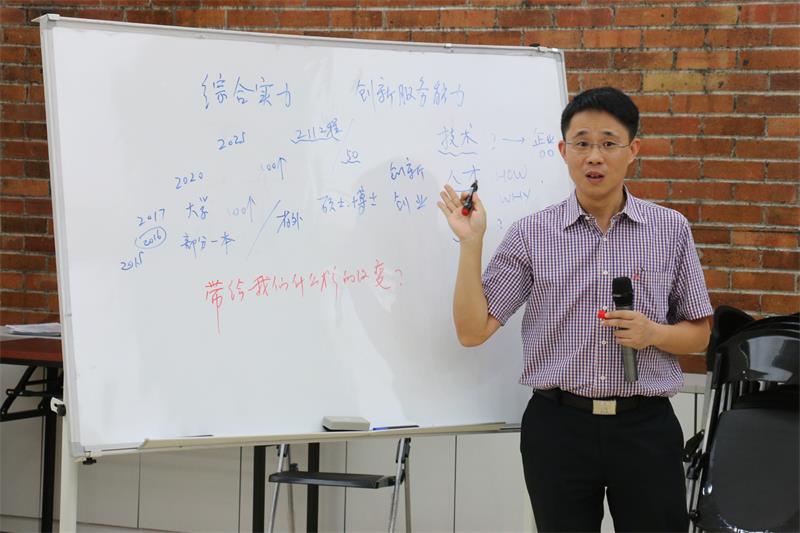 综合实力 创新服务能力
2025 211工程/ 技术 ? → 企业
50
2020 100↑ 创新 人才 HOW
2017 大学 100↑ / 省外 硕士.博士 创业 WHY
2016 部分一本 ?
2015
带给我们什么样的改变?